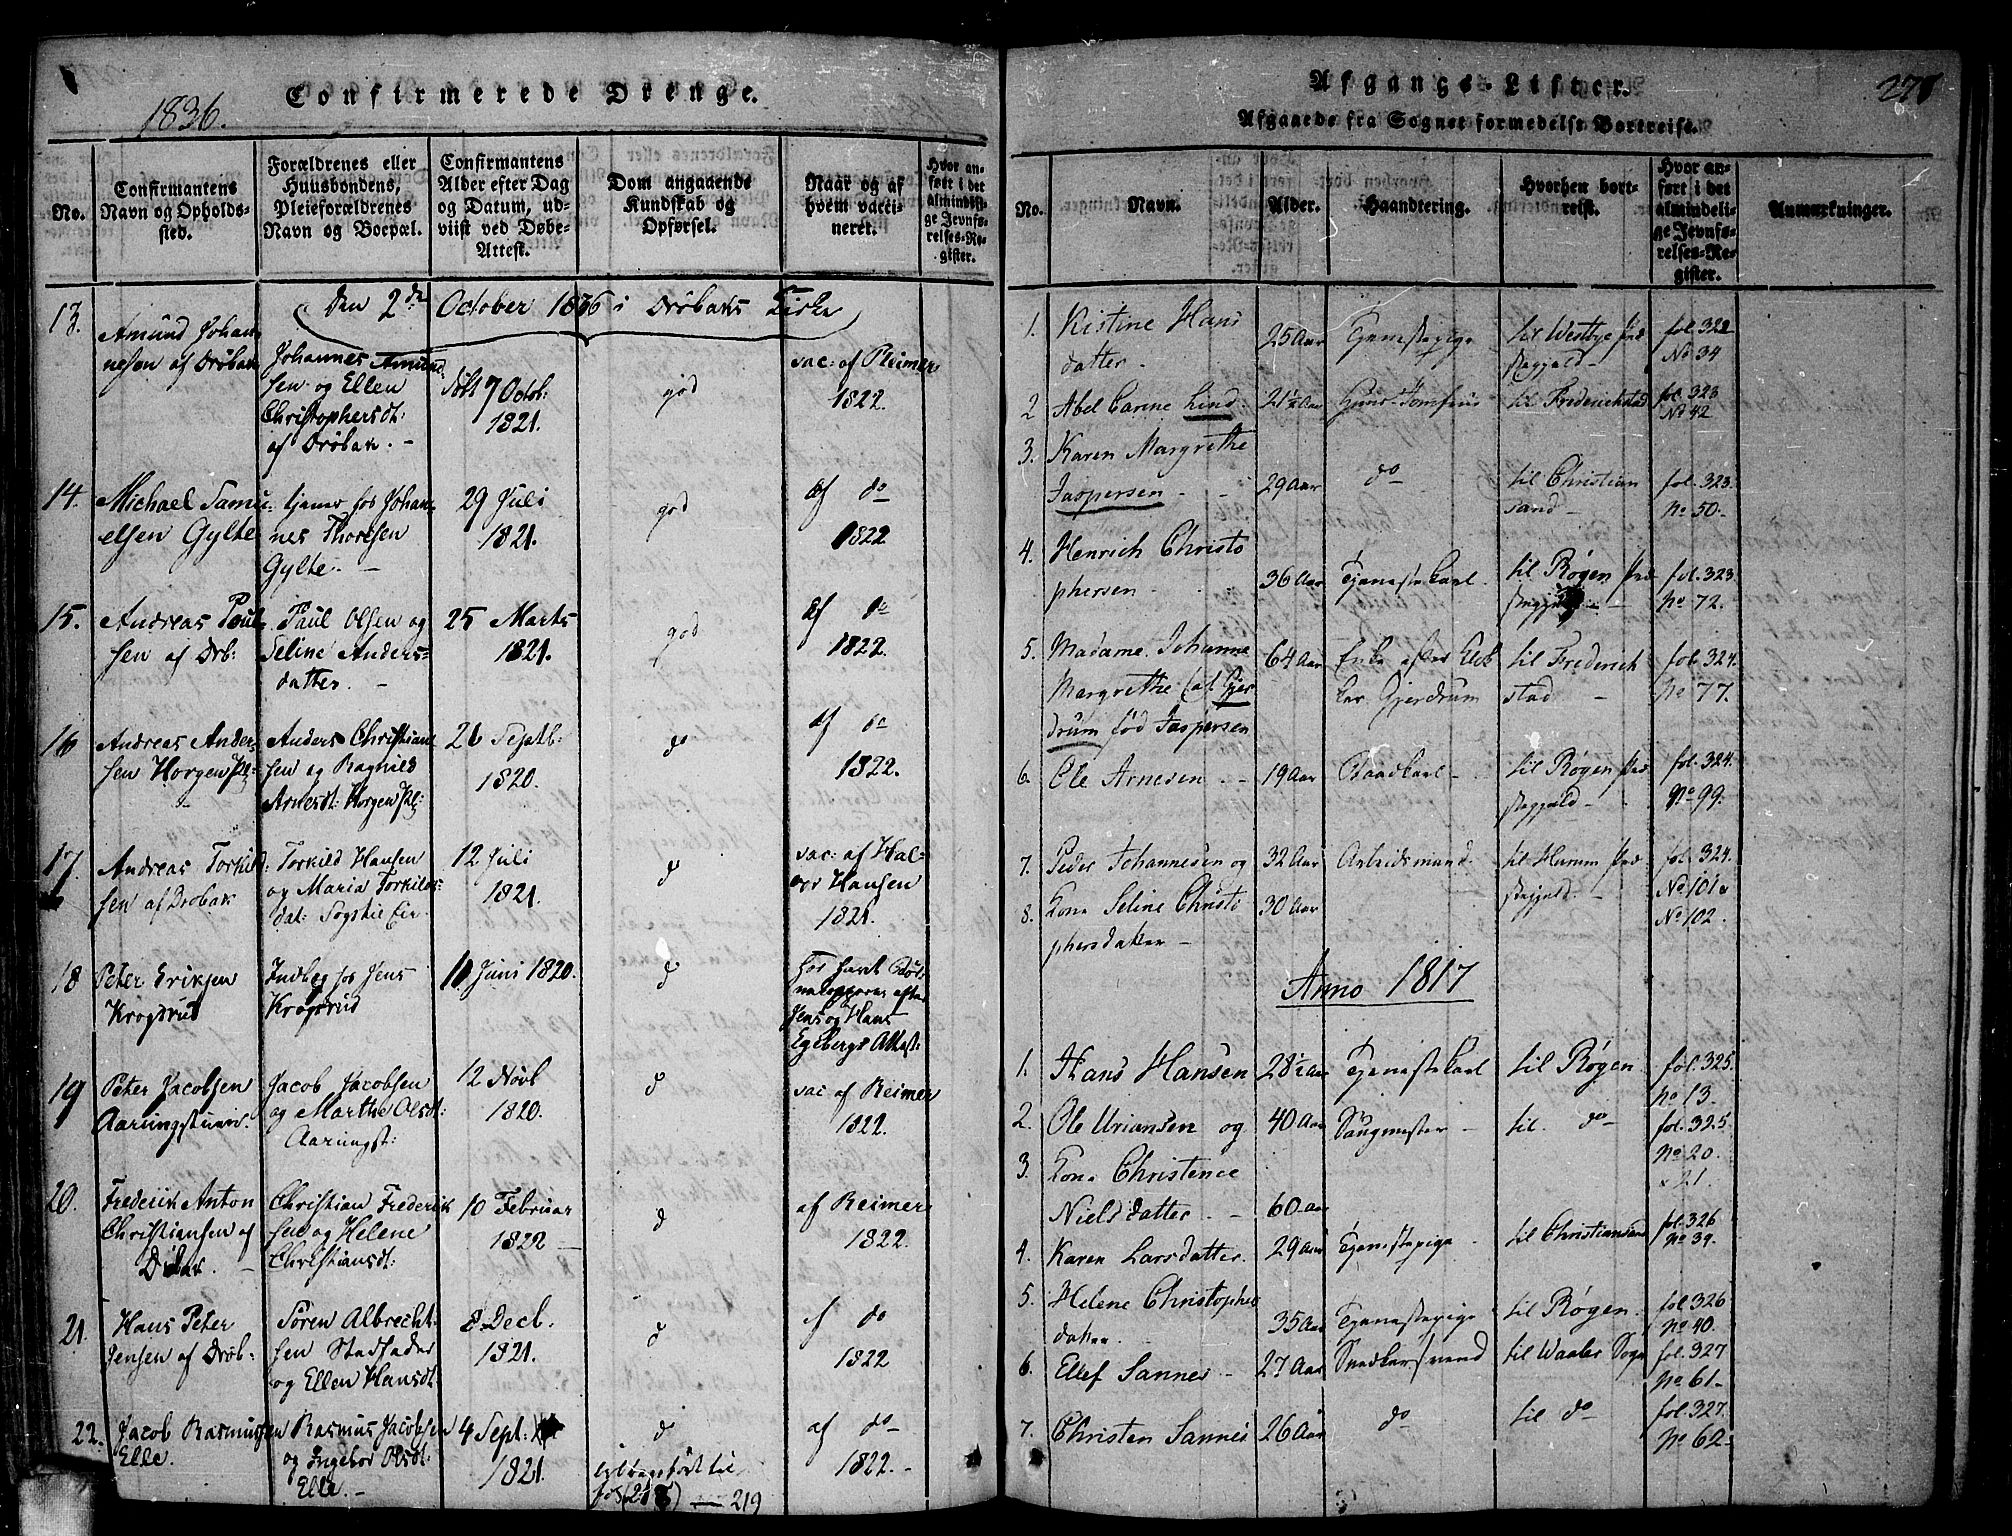 Confirmerede Drenge.
1836.
No.
Confirmantens
Navn og Opholds-
sted.
Forældrenes eller
Huusbondens,
Pleieforældrenes
Navn og Boepæl.
Confirmantens
Alder efter Dag
og Datum, ud-
viist ved Døbe-
Attest.
Dom angaaende
Kundskab og
Opførsel.
Naar og af
hvem vacci-
neret.
Hvor an-
ført i det
almindeli-
ge Jevnfø-
relses-Re-
gister.
Den 2de October 1836 i Drøbaks Kirke
13.
Amund Johan-
nesen af Drøbak
Johannes Amund
sen og Ellen
Christophersdt:
af Drøbak. -
født 7 Octob:
1821.
god
vac: af Reimer
1822.
14.
Michael Samu-
elsen Gylte
tjener hos Johan-
nes Thoresen
Gylte. -
29 Juli
1821.
god
af do
1822
15.
Andreas Poul-
sen af Drb:
Paul Olsen og
Seline Anders-
datter. -
25 Marts
1821.
god
af do
1822.
16
Andreas Ander-
sen Horgen Pl:
Anders Christian
sen og Ragnild
Arnesdt: Horgen Pl:
21 Septb:
1820.
do
af do
1822.
17.
Andreas Torkild-
sen af Drøbak
Torkild Hansen
og Maria Torkilds-
dat:
12 Juli
1821.
d
vac: af Hal-
vor Hansen
1821.
18
Peter Eriksen
Krogsrud
Indbeg hos Jens
Krogsrud
10 Juni 1820.
d
efter
Jens og Hans
Egebergs Attest:
19
Peter Jacobsen
Jacob Jacobsen
og Marthe Olsdt:
Aarungst:
12 Novb
1820.
d
vac af Reimer
1822.
20.
Frederik Anton
Christiansen af
Drøbak. -
Christian Frederik
sen og Helene
Christiansdt:
10 Februar
1822 -
d
af Reimer
1822.
21.
Hans Peter
Jensen af Drøb-
Søren Albrecht-
sen Stadfader
og Ellen Hansdt
8 Decb.
1821.
d
af do
1822
22.
Jacob Rasmussen
Elle.
Rasmus Jacobsen
og Ingebor Olsdt:
Elle. -
4 Sept:
1821.
d
af do
1822. -
219
Afgangs-Lister.
277
Afgaaede fra Sognet formedelst Bortreise.
No.
Navn.
Alder.
Haandtering.
Hvorhen bort-
reist.
Hvor an-
ført i det
almindeli-
ge Jevnfø-
relses-Re-
gister.
Anmærkninger.
1.
Kistine Hans
datter.
25 Aar
Tjenestepige
til Westbye Præ
stegjeld -
fol. 322
No 34
2
Abel Carine Lind.
21½ Aar
Huus-Jomfrue
til Frederichstad
fol. 323
No 42
3.
Karen Margrethe
Jaspersen -
29 Aar
do
til Christian
sand -
fol. 323.
No 50.
4.
Henrich Christo
phersen -
36 Aar
Tjenestekarl.
til Røgen Præ
stegjeld -
fol. 323.
No 72.
5.
Madame Johanne
Margrethe sal. Gjer
drum fød Jaspersen
64 Aar
Enke efter Klok
ker Gjerdrum
til Frederich
stad -
fol. 324.
No 77.
6.
Ole Arnesen -
19 Aar
Baadkarl -
til Røgen Præ
stegjeld -
fol. 324.
No 99.
7.
Peder Johannesen og
32 Aar
Arbeidsmand.
til Hurum Præ
stegjeld. -
fol. 324.
No 101 &
No 102.
8.
Kone Seline Christo
phersdatter -
30 Aar
Anno 1817
1.
Hans Hansen
28½ Aar
Tjenestekarl
til Røgen
fol. 325.
No 13.
2.
Ole Uriansen og
40 Aar
Saugmester -
til do -
fol. 325.
No 20.
x 21.
3.
Kone Christence
Nielsdatter -
60 Aar
4.
Karen Larsdatter.
29 Aar
Tjenestepige -
til Christiansand
fol. 326
No 39.
5.
Helene Christopher
datter. -
35 Aar
Tjenestepige
til Røgen.
fol. 326
No 40.
6.
Ellef Sannes -
27 Aar
Snedkersvend
til Waaler Sogn
fol. 327
No 61 -
7.
Christen Sannes
26 Aar
do
til do -
fol. 327.
No 62 -